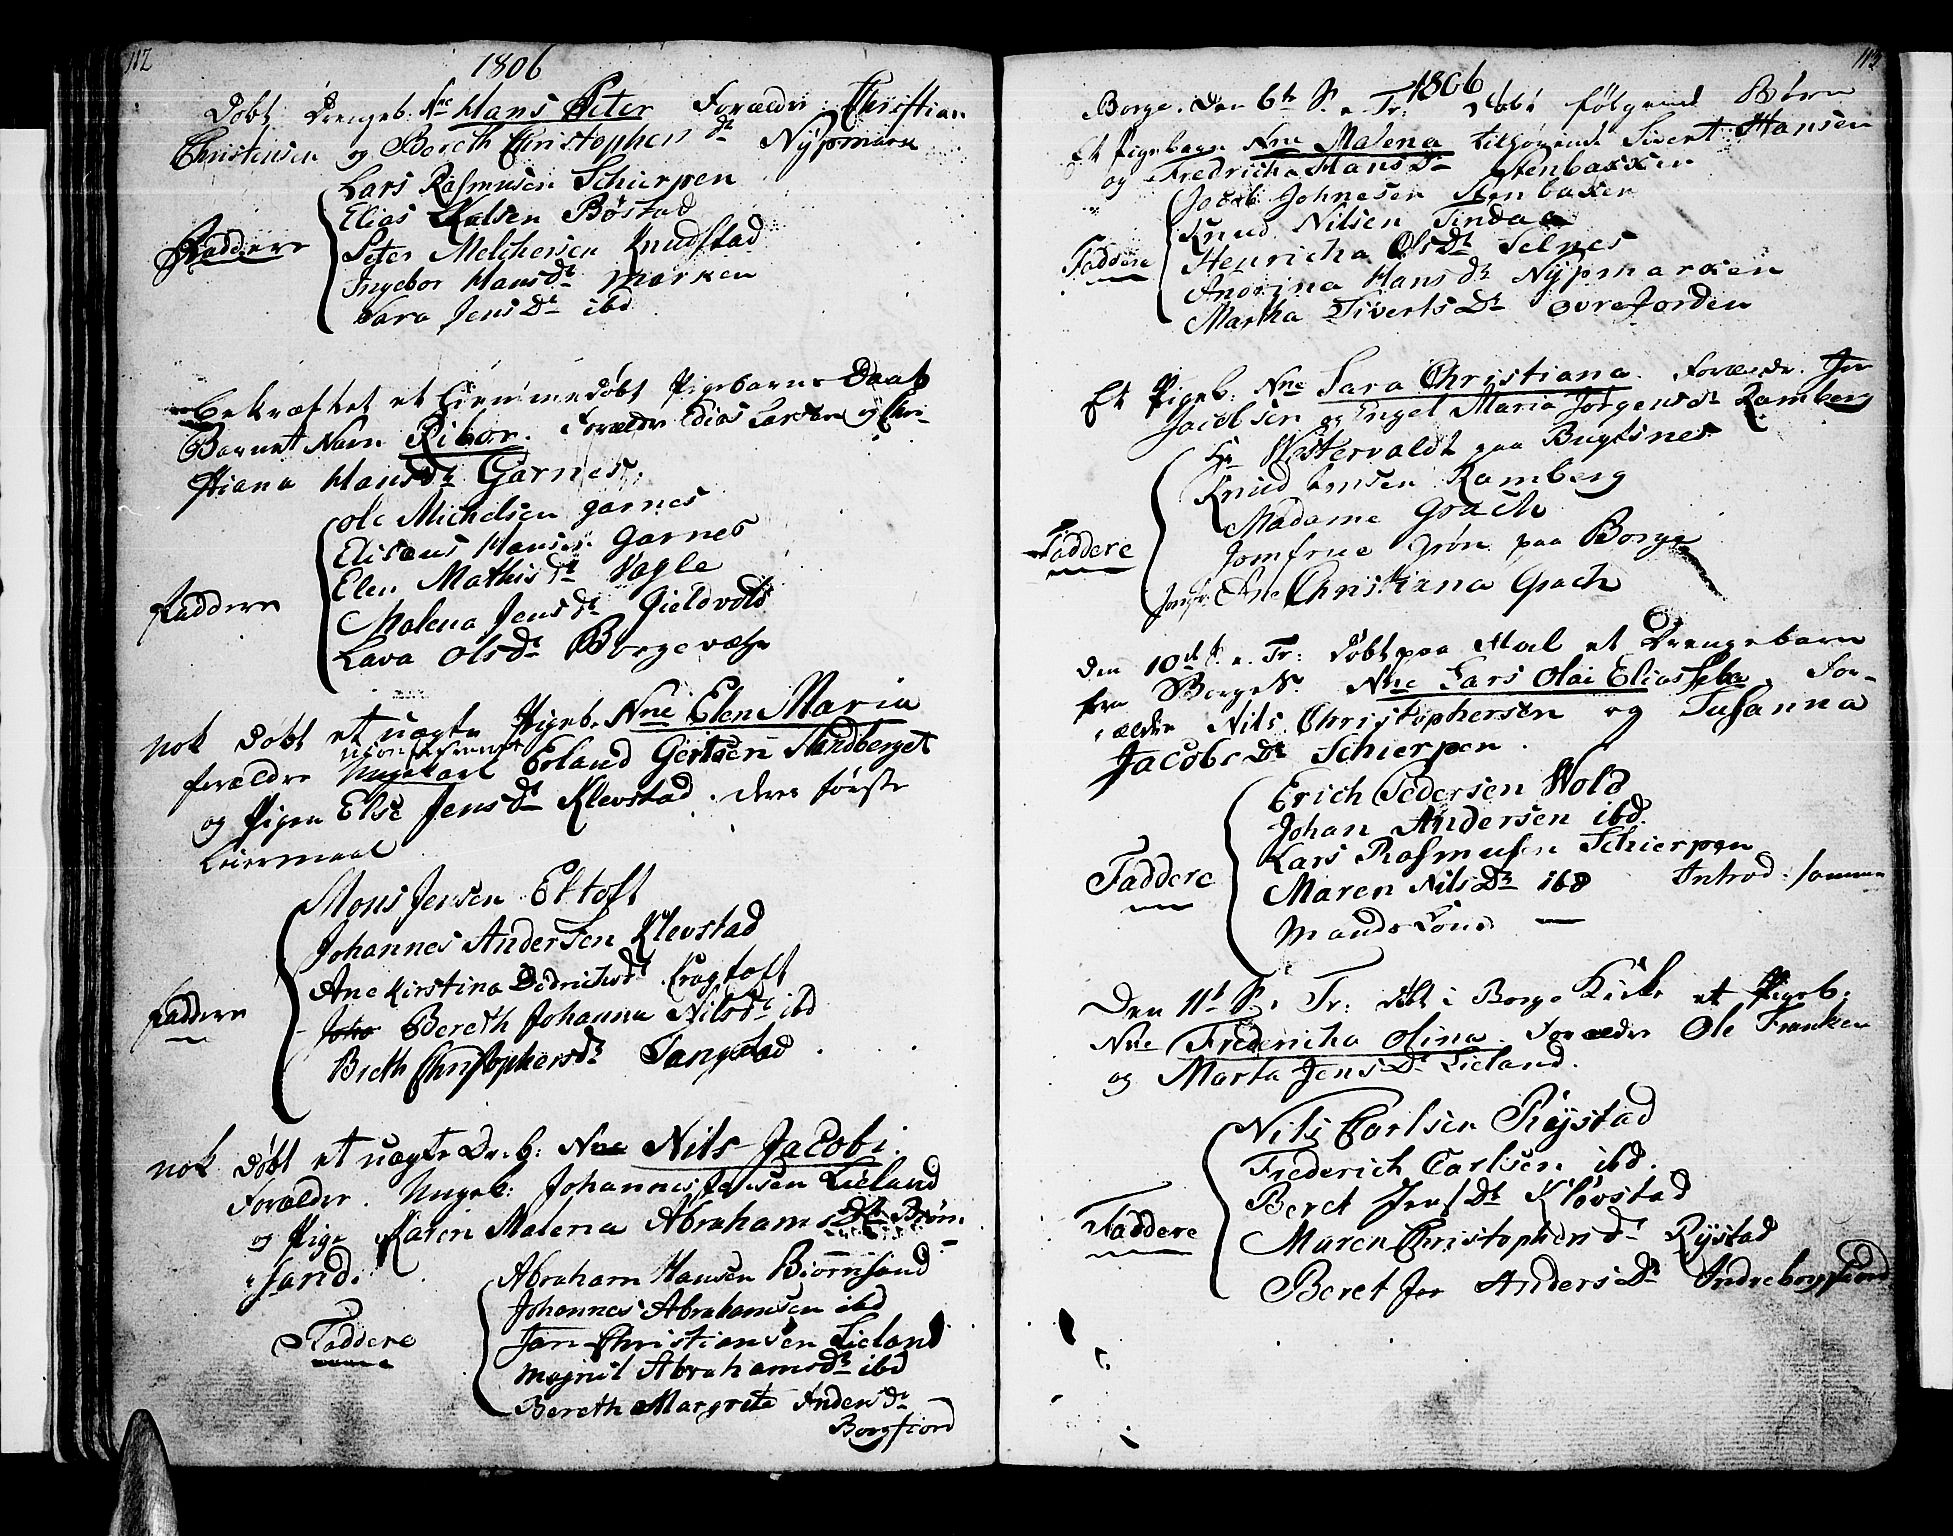 112
1806
Døbt Drengeb. Nne Hans Peter Forældr: Christian
Christensen og Bereth Christophersdr Nÿpmark
Lars Rasmusen Schierpen
Elias Olsen Bøstad
Faddere Peter Melchersen Knudstad
Ingebor Hansdr Marken
Sara Jensdr ibd
bekræftet et hiemmedøbt Pigebarns Daab
Barnet Navn Ribor. Forældre Elias Larsen og Chri-
stiana Hansdr Garnes.
Ole Michelsen Garnes
Eliseus Hansen Garnes
Elen Mathisdr Vagle
Faddere Malena Jensdr Gieldvold
Lava Olsdr Borgevær
nok døbt et uægte Pigeb. Nne Elen Maria
forældre Ungekarl Erland Gertsen Sandberget
og Pigen Else Jensdr Klevstad. deres første
Leiermaal
Mons Jensen Eltoft
Johannes Andersen Klevstad
Ane Kirstina Didrichsdr Kragtoft
Faddere Bereth Johanna Nilsdr ibd
Breth Christophersdr Tangstad
nok døbt et uægte Dr.b: Nne Nils Jacobi.
Forældre. Ungek: Johannes Jensen Lieland
og Pige Karen Malena Abrahamsdr Biørn-
sand.
Abraham Hansen Biørnsand
Johannes Abrahamsen ibd
Faddere Jan Christiansen Lieland
Magnil Abrahamsdr ibd
Bereth Margrete Andersdr
Borgfiord
113
1806
Borge. Den 6te S. e Tr: døbt følgende Børn
Et Pigebarn Nne Malena tilhørende Sivert Hansen
og Fredricha Hansdr Stenbakken
Jacob Johnesen Stenbaken
Knud Nilsen Tindaa
Faddere Henricha Olsdr Selnes
Andrina Hansdr Nÿpmarken
Martha Sivertsdr øvreJorden
Et Pigeb: Nne Sara Christiana. Forældr. Jon
Jacobsen og Engel Maria Jørgensdr Ramberg
Hr Westervaldt paa Bugtsnes
Knud Jensen Ramberg
Madame Grach
Faddere Jomfrue Grøn paa Borge
Jomfr: Ane Christiana Grach
Den 10de S. e. Tr: døbt paa Mal et Drengebarn
fra Borge S. Nne Lars Olai Elias Seba. For-
ældre Nils Christophersen og Susanna
Jacobsdr Schierpen.
Erich Pedersen Wold
Johan Andersen ibd.
Lars Rasmusen Schierpen
Faddere Maren Nilsdr ibd Introd: samme
Mands Kone —
Den 11te S. e Tr: døbt i Borge Kirke et Pigeb.
Nne Fredericha Olina. Forældre Ole Franken
og Marta Jensdr Lieland.
Nils Carlsen Røystad
Frederich Carlsen ibd.
Beret Jensdr Kløvstad
Faddere Maren Christophersdr Rÿstad
Beret Jor Andersdr Indreborgfiord